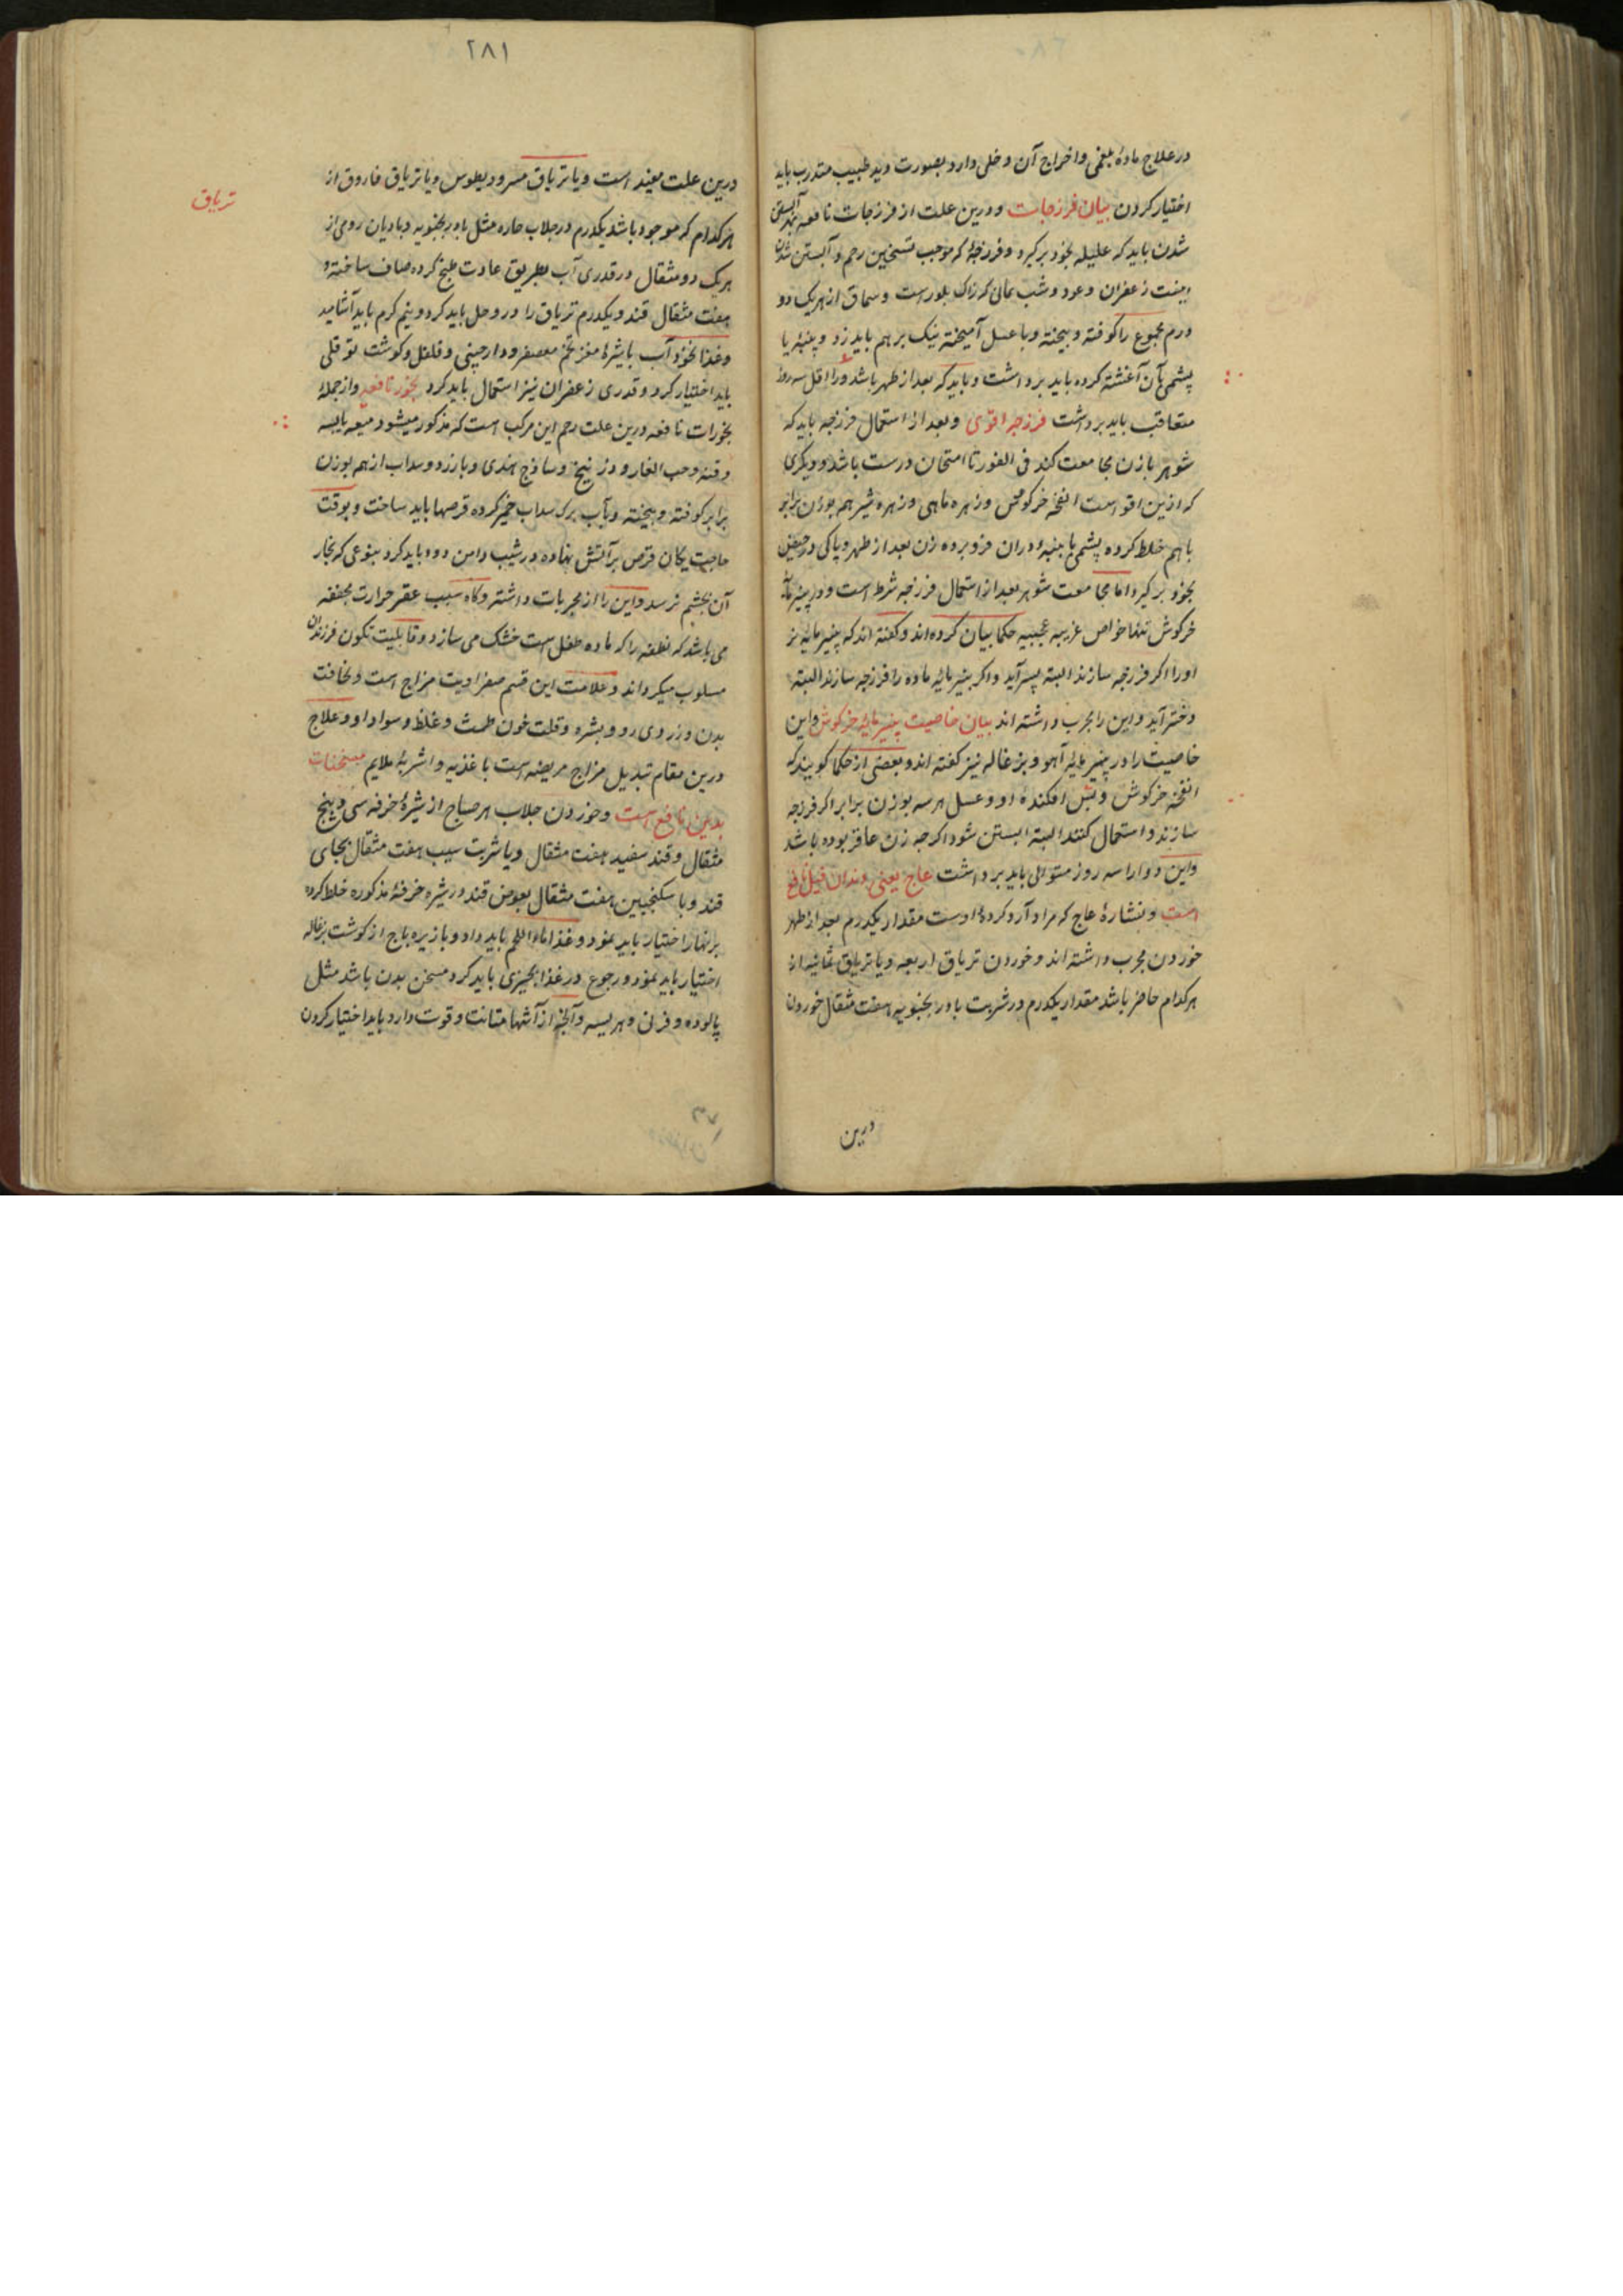 در علاج مادهٔ بلغمی و اخراج آن دخلی دارد بصورت دید طبیب متدرب باید
اختیار کردن بیان فرزجات و درین علت از فرزجات نافعه بعد آبستن
شدن باید که علیله بخود برگیرد و فرزجهٔ که موجب تسخین رحم و آبستن شدن
زعفران و عود و شب یمانی که زاک بلورست و سماق از هریک دو
درم مجموع را کوفته و بیخته و با عسل آمیخته نیک بر هم باید زد و پنبهٔ یا
پشمی بآن آغشته کرده باید برداشت و باید که بعد از طهر باشد و را اقل سه روز
متعاقب باید برداشت فرزجه اقوی و بعد از استعمال فرزجه باید که
شوهر با زن مجامعت کند فی الفور تا امتحان درست باشد و دیگری
که ازین اقواست انفخه خرکوش و زهره ماهی و زهره شیر هم بوزن برابر
با هم خلط کرده پشمی یا پنبه دران فرو برده زن بعد از طهر و پاکی و حیض
بخود برگیرد اما مجامعت شوهر بعد از استعمال فرزجه شرط است و در پنیرمایهٔ
خرکوش تنها خواص غریبه عجیبیه حکما بیان کرده‌اند و کفته اند که پنیرمایه نر
او را اکر فرزجه سازند البته پسر آید و اکر پنیرمایه ماده را فرزجه سازند البته
دختر آید و این را مجرب داشته اند بیان خاصیت پنیرمایهٔ خرکوش و این
خاصیت را در پنیرمایهٔ آهو و بزغاله نیز کفته اند و بعضی از حکما کویند که
انفخه خرکوش و پشن افکنده او و عسل هر سه بوزن برابر اکر فرزجه
سازند و استعمال کنند البته ابستن شود اکرچه زن عاقر بوده باشد
و این دوا را سه روز متوالی باید برداشت عاج یعنی دندان فیل نافع
است و نشارهٔ عاج که مراد آرد کردهٔ اوست مقدار یکدرم بعد از طهر
خوردن مجرب داشته اند و خوردن تریاق اربعه و یا تریاق ثمانیه از
هرکدام حاضر باشد مقدار یکدرم در شربت بادرنجنبویه هفت مثقال خوردن
درین
۲۸۱
درین علت مفید است و یا تریاق مسرودیطوس و یا تریاق فاروق از
تریاق
هرکدام که موجود باشد یکدرم در جلاب حاره مثل بادرنجنبویه و بادیان رومی از
هریک دو مثقال در قدری آب بطریق عادت طبخ کرده صاف ساخته و
هفت مثقال قند و یکدرم تریاق را در و حل باید کرد و نیم کرم باید آشامید
و غذا نخود آب با شیرهٔ مغز تخم معصفر و دارچینی و فلفل و کوشت
باید اختیار کرد و قدری زعفران نیز استعمال باید کرد بخور نافعه و از جملهٔ
بخورات نافعه درین علت رحم این مرکب است که مذکور میشود میعه یابسه
و قنه و حب الغار و زرنیخ و ساذج هندی و بارزد و سداب از هم بوزن
برابر کوفته و بیخته و بآب برک سداب خمیر کرده قرصها باید ساخت و بوقت
حاجت یکان قرص بر آتش نهاده در شیب دامن دود باید کرد بنوعی که بخار
آن بچشم نرسد و این را از مجربات داشته و کاه سبب عقر حرارت مجففه
می باشد که نطفه را که ماده طفل است خشک می سازد و قابلیت تکون فرزندان
مسلوب میکرداند و علامت این قسم صفراویت مزاج است و نحافت
بدن و زردی رو و بشره و قلت خون طمث و غلظ و سواد او و علاج
درین مقام تبدیل مزاج مریضه است باغذیه و اشربهٔ ملایم مسخنات
بدین نافع است و خوردن جلاب هر صباح از شیرهٔ خرفه سی و پنج
مثقال و قند سفید هفت مثقال و یا شربت سیب هفت مثقال بجای
قند و با سکنجبین هفت مثقال بعوض قند در شیره خرفهٔ مذکوره خلط کرده
بر نهار اختیار باید نمود و غذا ماء اللحم باید داد و با زیره باج از کوشت بزغاله
اختیار باید نمود و رجوع در غذا بچیزی باید کرد مسخن بدن باشد مثل
پالوده و فرنی و هریسه و آنچه از آشها متانت و قوت دارد باید اختیار کردن